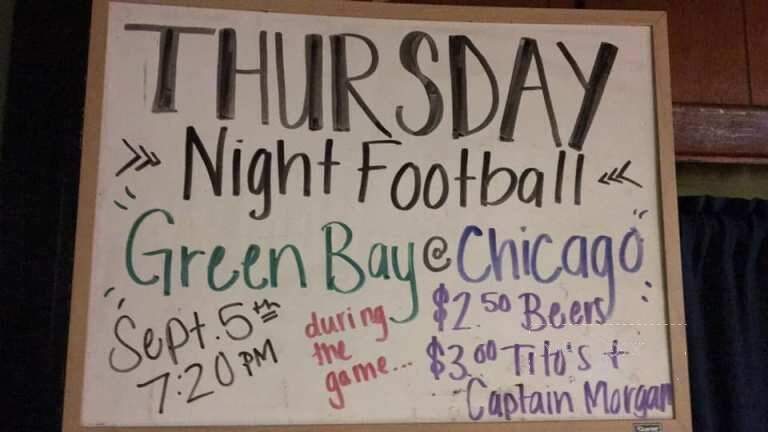 THURSDAY
>>> Night Football <<<
Green Bay @ Chicago
Sept. 5th
7:20 PM
during
the
game...
$2.50 Beers
$3.00 Tito's +
Captain Morgan